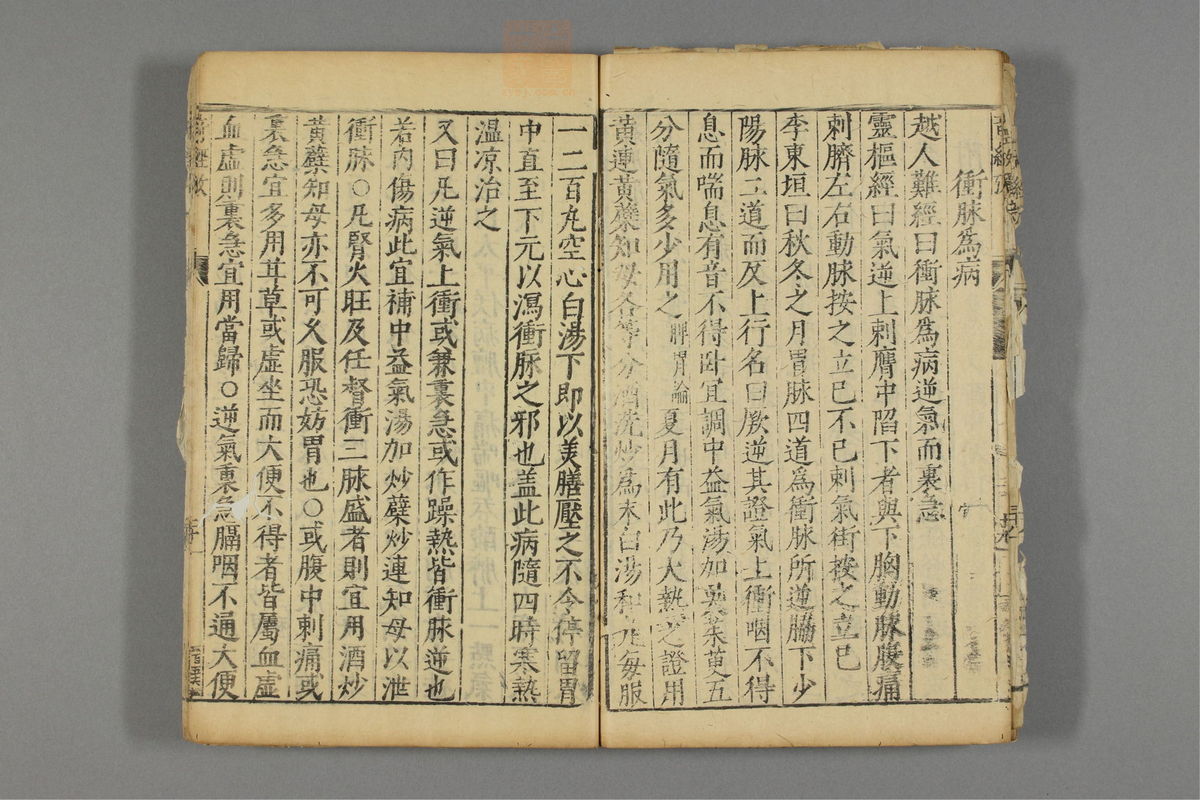 衝脉爲病
越人難經曰衝脉爲病逆氣而裏急
靈樞經曰氣逆上刺膺中陷下者與下胸動脉腹痛
刺臍左右動脉按之立已不已刺氣街按之立已
李東垣曰秋冬之月胃脉四道爲衝脉所逆脇下少
陽脉二道而反上行名曰厥逆其證氣上衝咽不得
息而喘息有音不得卧宜調中益氣湯加吳茱萸五
分隨氣多少用之脾胃論夏月有此乃大熱之證用
黃連黃蘗知母各等分酒洗炒爲末白湯和丸每服
一二百丸空心白湯下即以美膳壓之不令停留胃
中直至下元以瀉衝脉之邪也盖此病隨四時寒熱
溫凉治之
又曰凡逆氣上衝或兼裏急或作躁熱皆衝脉逆也
若内傷病此宜補中益氣湯加炒蘗炒連知母以泄
衝脉○凡腎火旺及任督衝三脉盛者則宜用酒炒
黃蘗知母亦不可久服恐妨胃也○或腹中刺痛或
裏急宜多用甘草或虛坐而大便不得者皆屬血虛
血虛則裏急宜用當歸○逆氣裏急膈咽不通大便